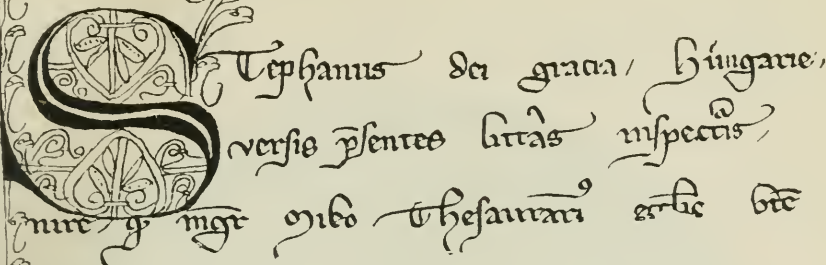 Stephanus dei gracia, Hungarie,
versis p̄sentes litt̾as inspectis,
nire, ꝙ mgr̄ Miko Thesaurari⁹ eccl̄ie bt̄e